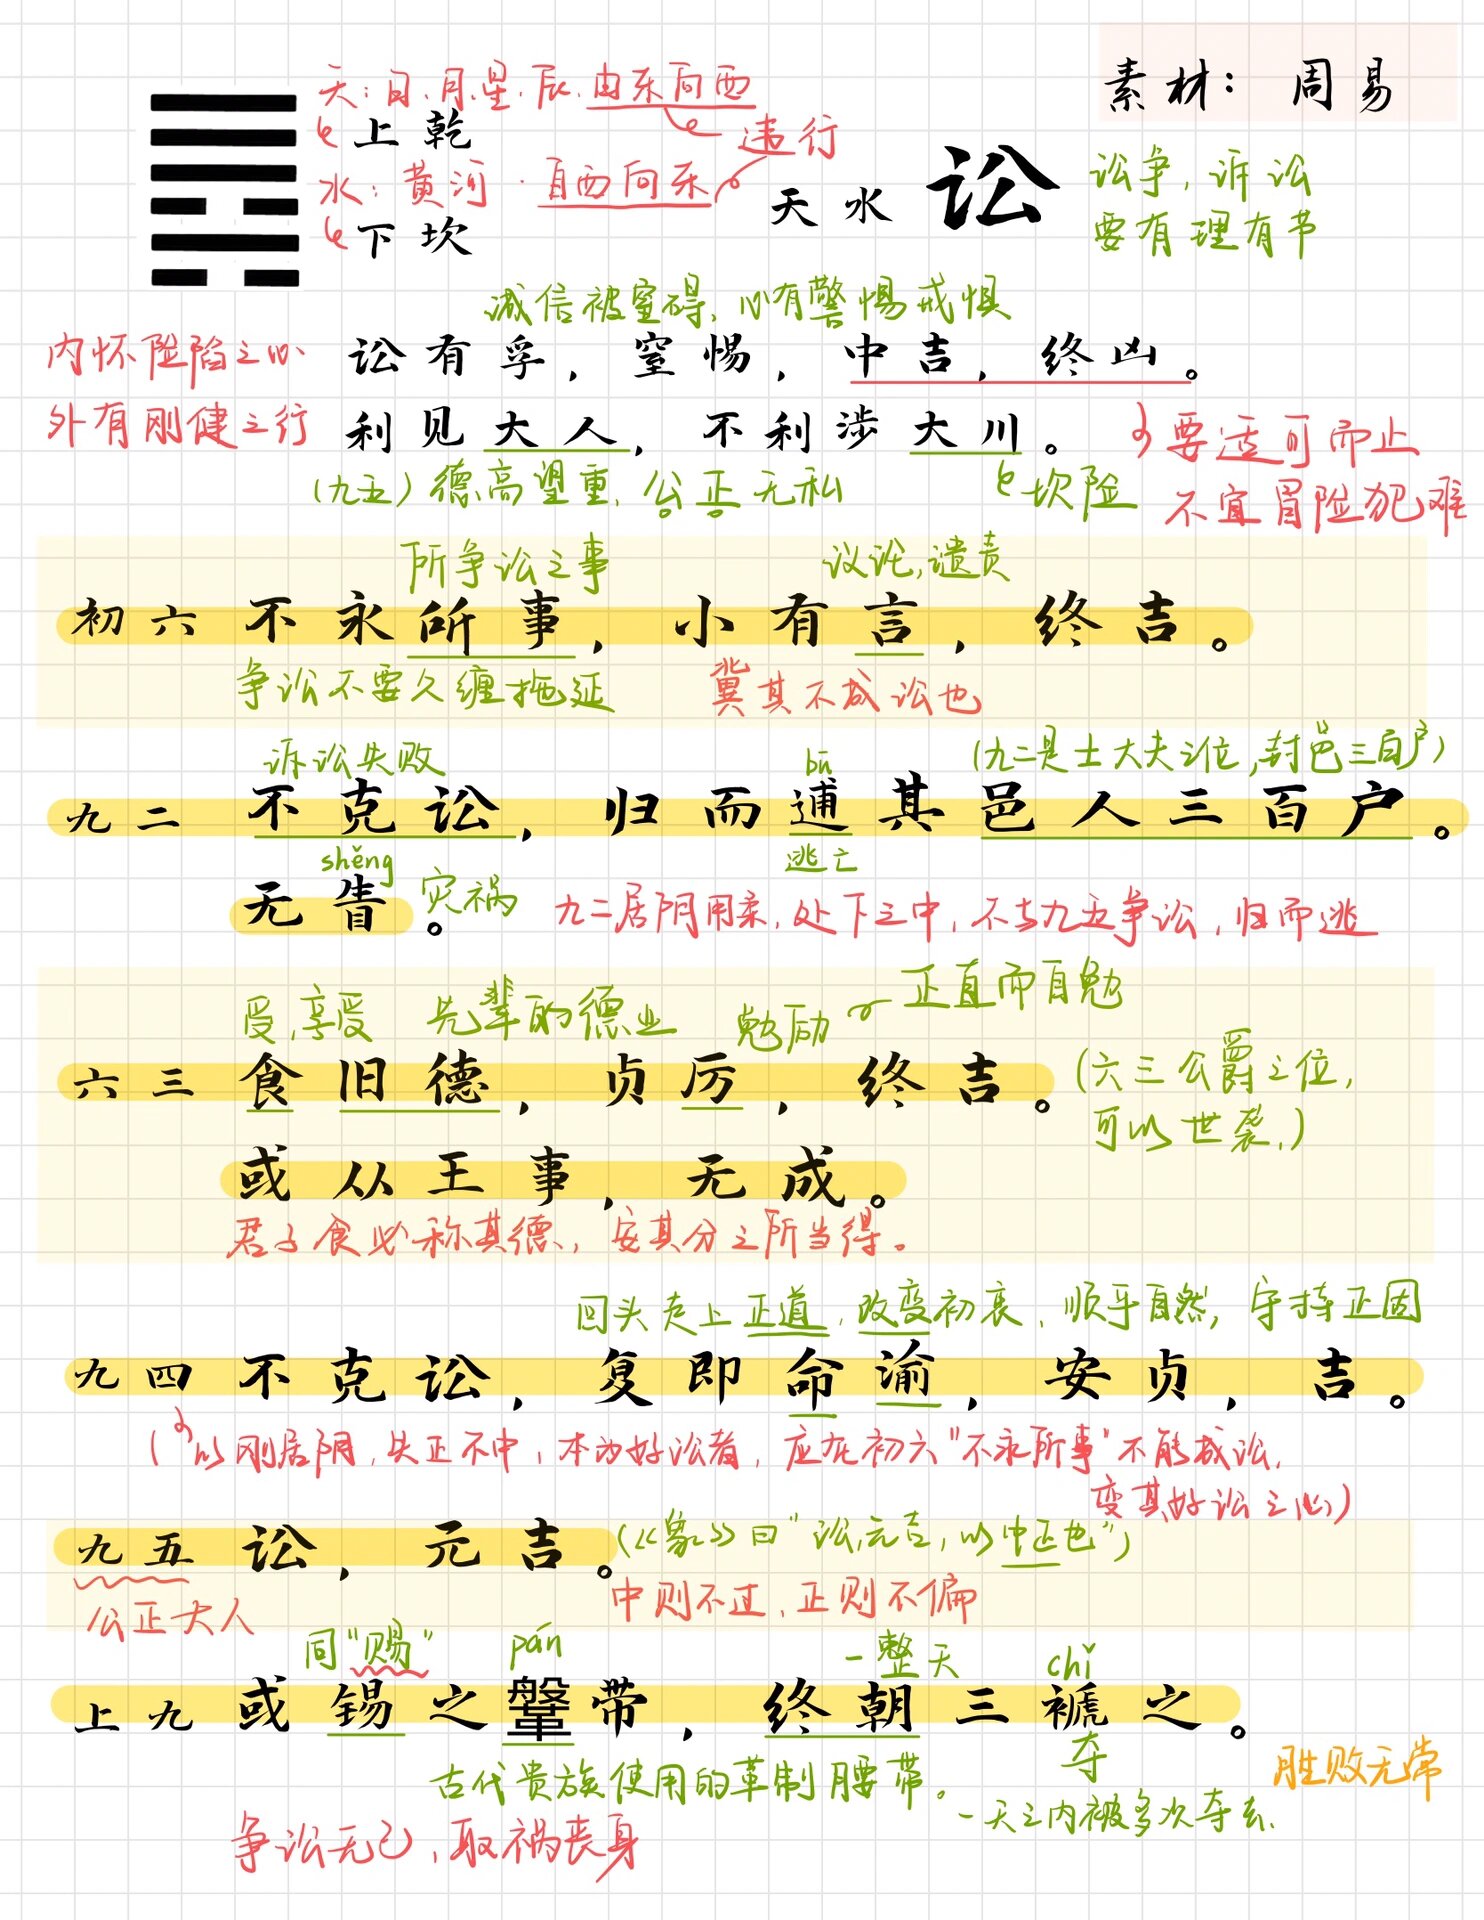 素材：周易
天：日.月.星.辰.由东向西
上乾
违行
水：黄河·自西向东
下坎
天水 讼
讼争，诉讼
要有理有节
诚信被窒碍，心有警惕戒惧
内怀险陷之心
讼有孚，窒惕，中吉，终凶。
外有刚健之行
利见大人，不利涉大川。
要适可而止
不宜冒险犯难
（九五）德高望重，公正无私
坎险
所争讼之事
议论，谴责
初六 不永所事，小有言，终吉。
争讼不要久缠拖延
冀其不成讼也
诉讼失败
bū
（九二是士大夫之位，封邑三百户）
九二 不克讼，归而逋其邑人三百户。
逃亡
shěng
无眚。
灾祸
九二居阴用柔，处下之中，不与九五争讼，归而逃
受，享受
先辈的德业
勉励
正直而自勉
六三 食旧德，贞厉，终吉。
（六三公爵之位，
可以世袭，）
或从王事，无成。
君子食必称其德，安其分之所当得。
回头走上正道，改变初衷，顺乎自然，守持正固
九四 不克讼，复即命渝，安贞，吉。
（以刚居阴，失正不中，本为好讼者，应在初六“不永所事”不能成讼，
变其好讼之心）
九五 讼，元吉。
（《象》曰“讼，元吉，以中正也”）
公正大人
中则不过，正则不偏
同“赐”
pán
一整天
chǐ
上九 或锡之鞶带，终朝三褫之。
古代贵族使用的革制腰带。
夺
一天之内被多次夺去.
胜败无常
争讼无已，取祸丧身